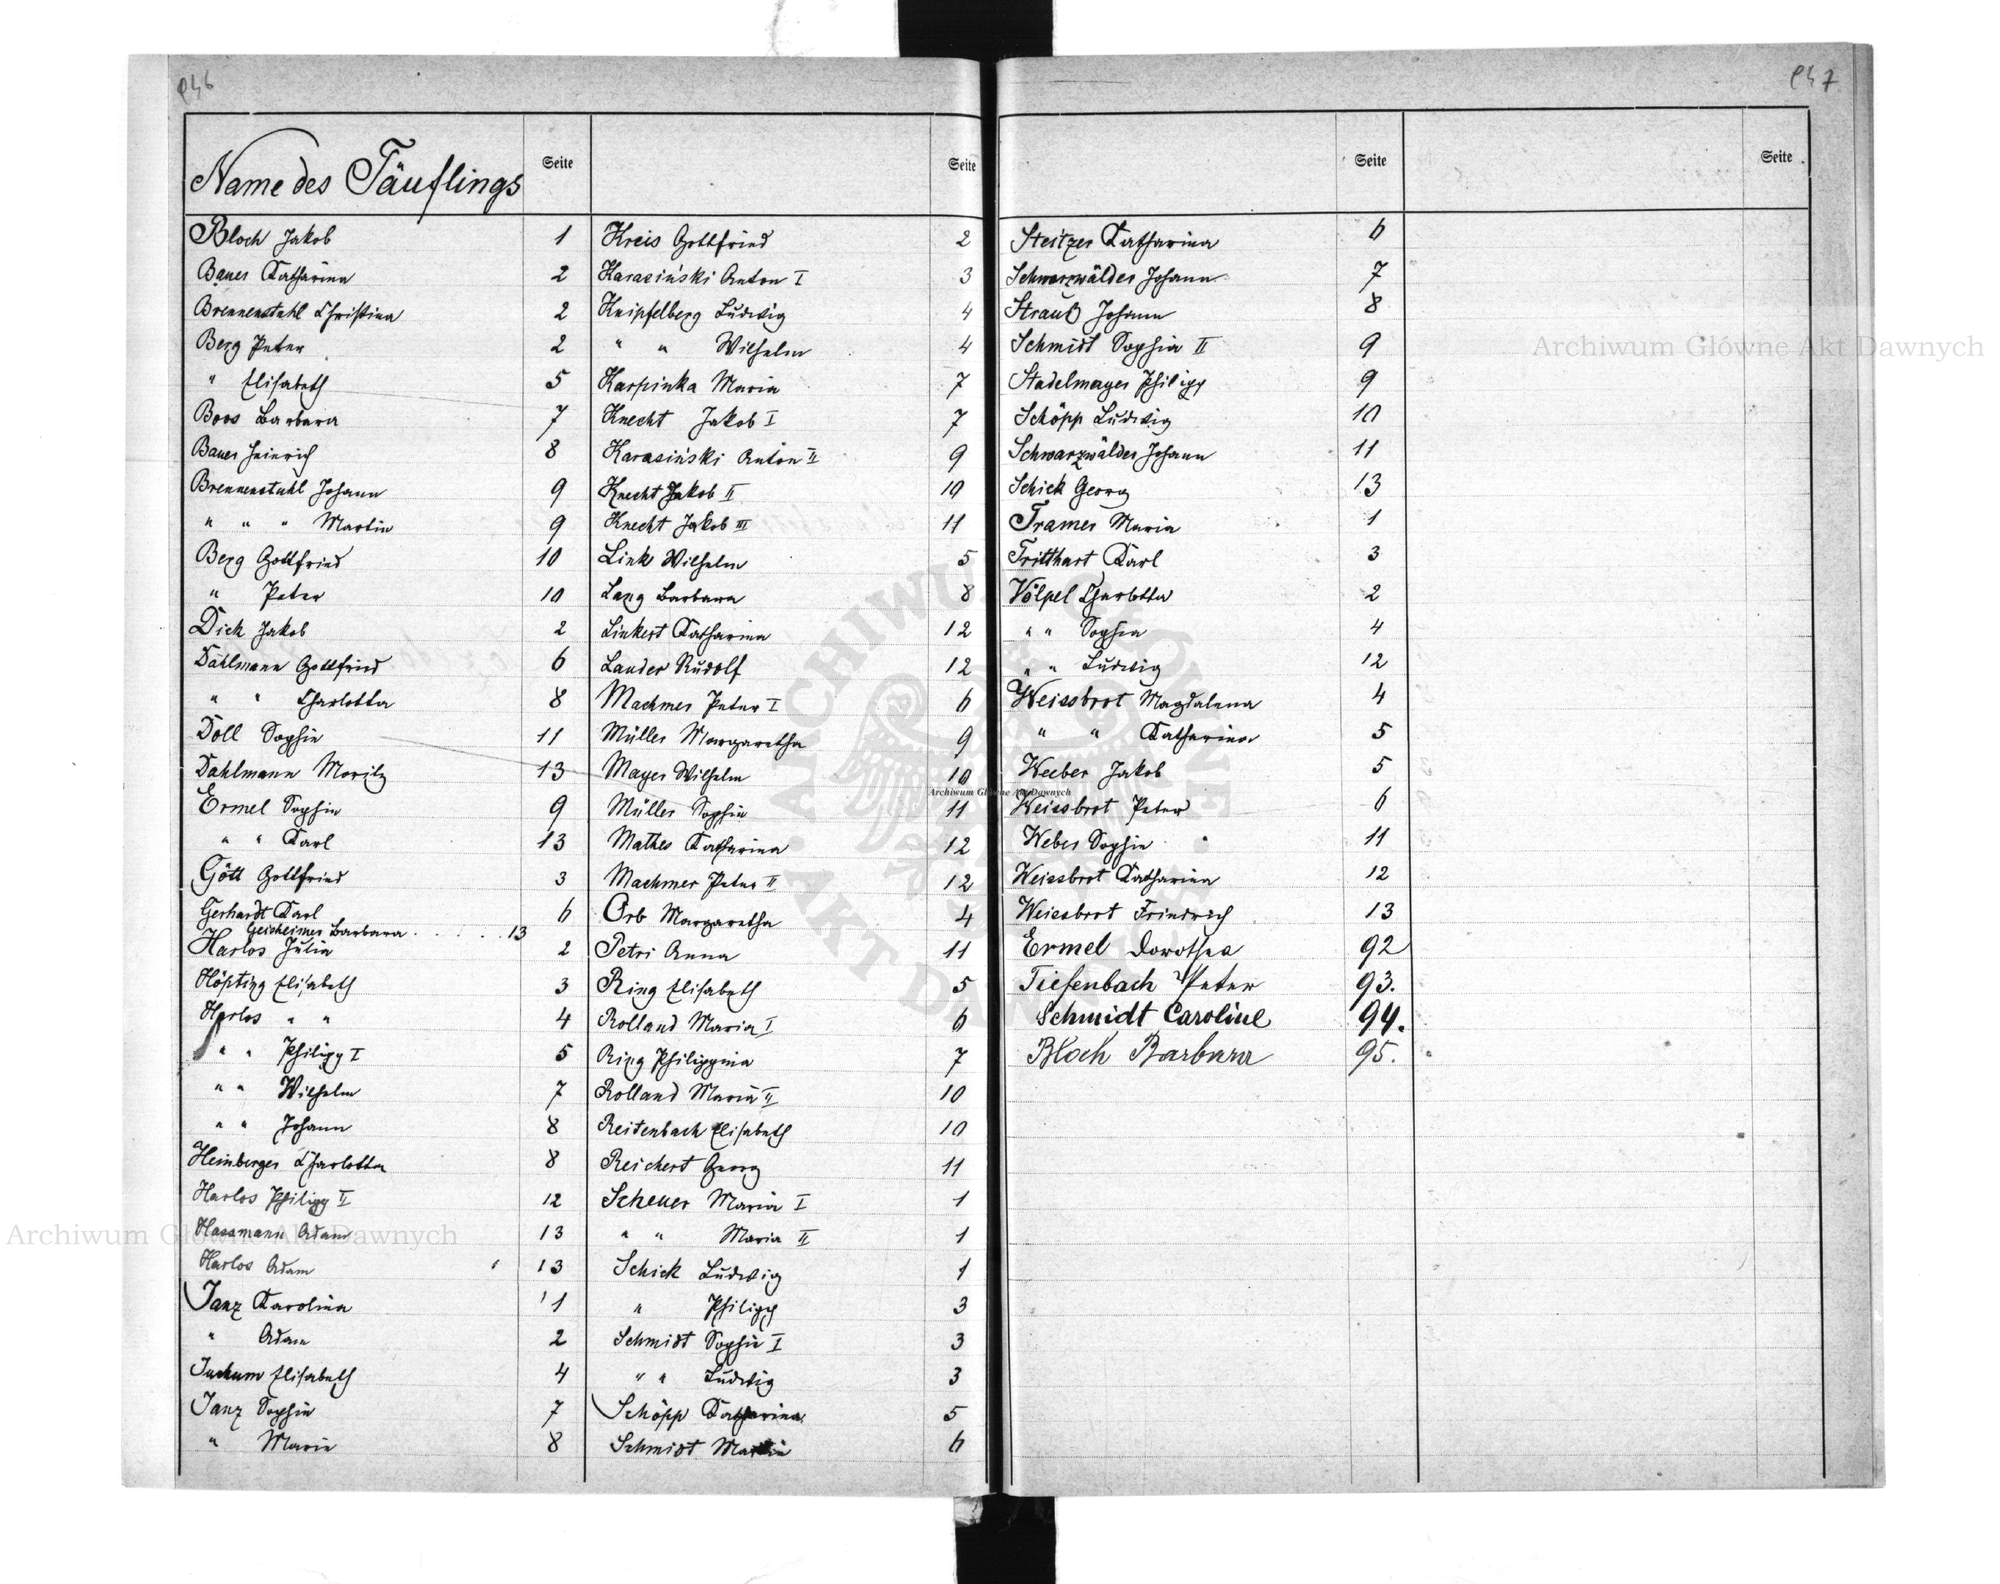 Name des Täuflings Seite
Bloch Jakob 1
Bauer Katharina 2
Brennenstuhl Christina 2
Berg Peter 2
" Elisabeth 5
Boos Barbara 7
Bauer Heinrich 8
Brennenstuhl Johann 9
" " " Martin 9
Berg Gottfried 10
" Peter 10
Dick Jakob 2
Dahlmann Gottfried 6
" " Charlotta 8
Doll Sophie 11
Dahlmann Moritz 13
Ermel Sophie 9
" " Karl 13
Gött Gottfried 3
Gerhardt Karl 6
Geicheimer Barbara . . . . . 13
Harlos Julia 2
Höpting Elisabeth 3
Harlos " " 4
" " Philipp I 5
" " Wilhelm 7
" " Johann 8
Heinberger Charlotta 8
Harlos Philipp II 12
Hassmann Adam 13
Harlos Adam 13
Janz Karolina 1
" Adam 2
Juckum Elisabeth 4
Janz Sophie 7
" Marie 8
Seite
Kreis Gottfried 2
Karasiński Anton I 3
Knipfelberg Ludwig 4
" " Wilhelm 4
Karpinka Maria 7
Knecht Jakob I 7
Karasiński Anton II 9
Knecht Jakob II 10
Knecht Jakob III 11
Link Wilhelm 5
Lang Barbara 8
Linkert Katharina 12
Lander Rudolf 12
Machmer Peter I 6
Müller Margaretha 9
Mayer Wilhelm 10
Müller Sophie 11
Mathes Katharina 12
Machmer Peter II 12
Orb Margaretha 4
Petri Anna 11
Ring Elisabeth 5
Rolland Maria I 6
Ring Philippina 7
Rolland Maria II 10
Reitenbach Elisabeth 10
Reichert Georg 11
Scheuer Maria I 1
" " Maria II 1
Schick Ludwig 1
" Philipp 3
Schmidt Sophie I 3
" " Ludwig 3
Schöpp Katharina 5
Schmidt Martin 6
Seite
Steitzer Katharina 6
Schwarzwälder Johann 7
Strauß Johann 8
Schmidt Sophia II 9
Stadelmayer Philipp 9
Schöpp Ludwig 10
Schwarzwälder Johann 11
Schick Georg 13
Tramer Maria 1
Tritthart Karl 3
Völpel Charlotta 2
" " Sophia 4
" " Ludwig 12
Weissbrot Magdalena 4
" " Katharina 5
Weeber Jakob 5
Weissbrot Peter 6
Weber Sophie 11
Weissbrot Katharina 12
Weissbrot Friedrich 13
Ermel Dorothea 92
Tiefenbach Peter 93.
Schmidt Caroline 94.
Bloch Barbara 95.
Seite
Archiwum Główne Akt Dawnych
Archiwum Główne Akt Dawnych
Archiwum Główne Akt Dawnych
ARCHIWUM GŁÓWNE AKT DAWNYCH